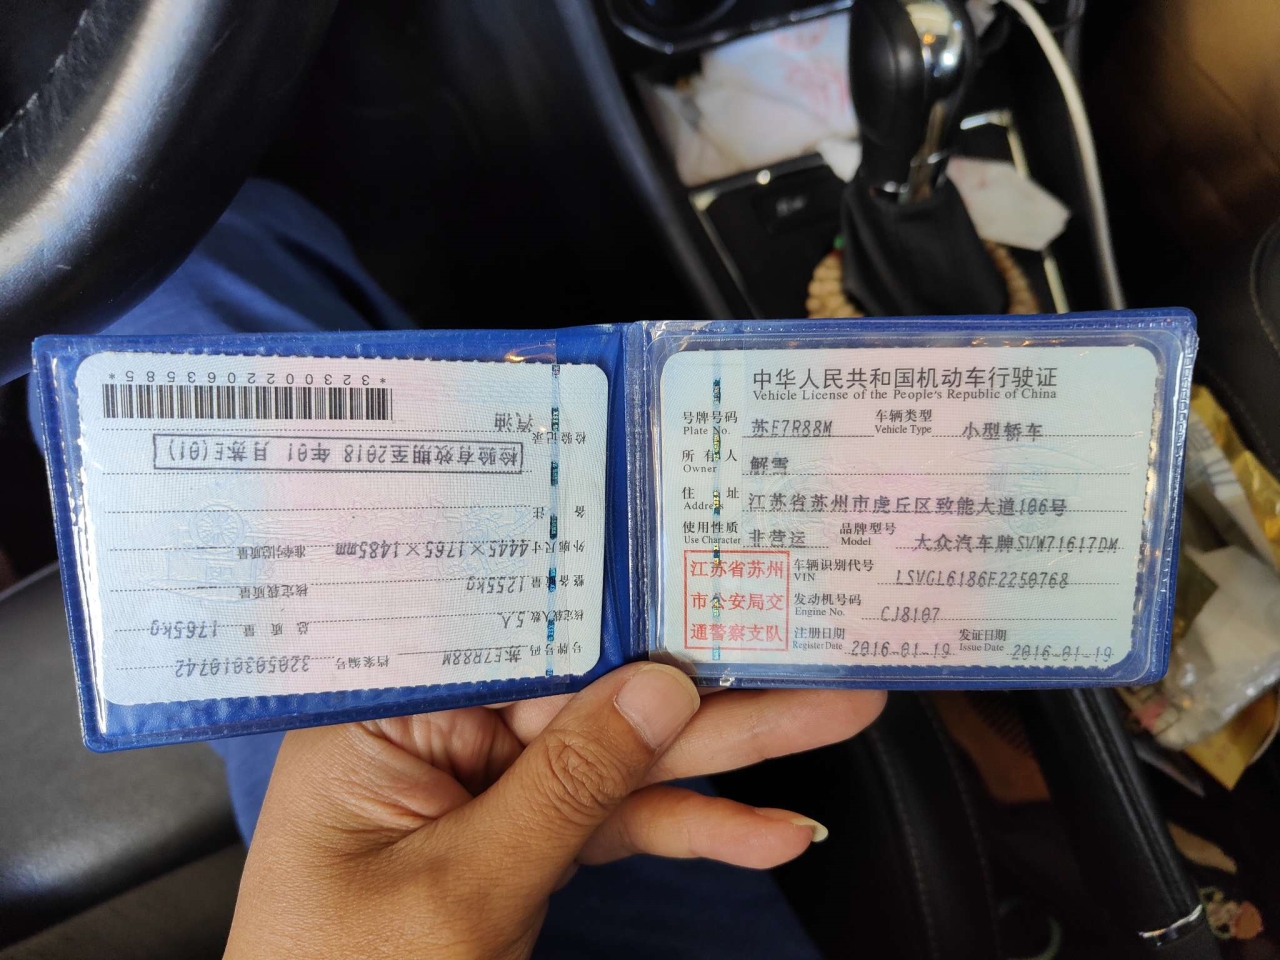 *3230022063585*
汽油
检验记录
检验有效期至2018 年01 月苏E(01)
备 注
外廓尺寸 4445×1765×1485mm 准牵引总质量
整备质量 1255kg 核定载质量
核定载人数 5人 总 质 量 1765kg
号牌号码 苏E7R88M 档案编号 320503010742
中华人民共和国机动车行驶证
Vehicle License of the People's Republic of China
号牌号码 苏E7R88M 车辆类型 小型轿车
Plate No. Vehicle Type
所 有 人 解雪
Owner
住 址 江苏省苏州市虎丘区致能大道106号
Address
使用性质 非营运 品牌型号 大众汽车牌SVW71617DM
Use Character Model
江苏省苏州
市公安局交
通警察支队
车辆识别代号 LSVGL6186F2250768
VIN
发动机号码 CJ8107
Engine No.
注册日期 2016-01-19 发证日期 2016-01-19
Register Date Issue Date